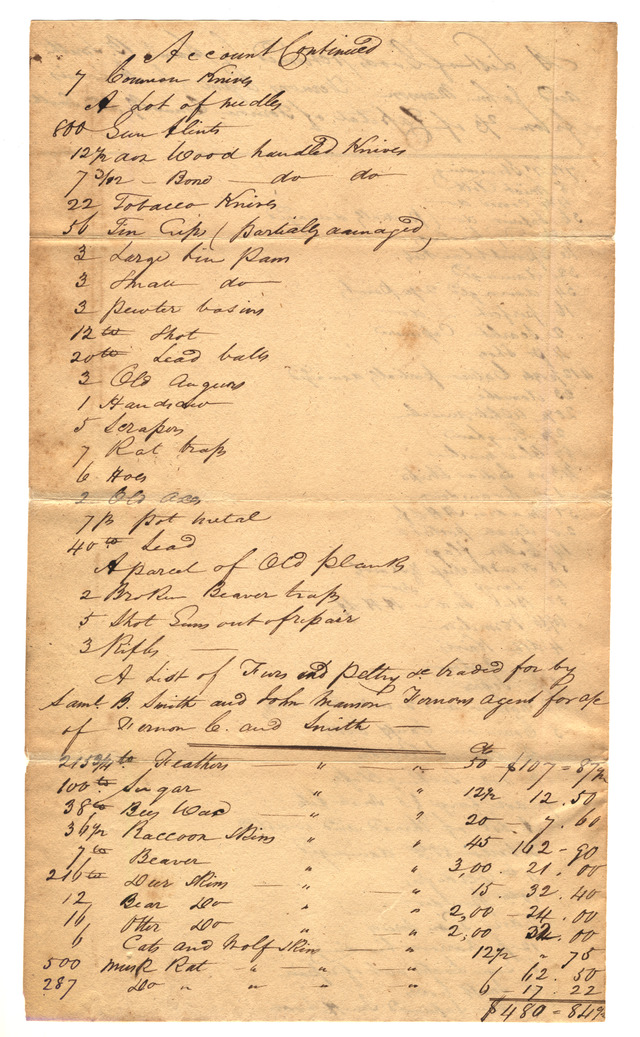 Account Continued
7 Common Knives
A Lot of needles
800 Gun flints
12½ doz Wood handled Knives
7 3/12 - Bone - do do
22 Tobacco Knives
56 Tin Cups (partially damaged,
3 Large tin Pans
3 Small do
3 pewter basins
12 lb Shot
20 lb Lead balls
3 Old Augurs
1 Handsaw
5 Scrapers
7 Rat traps
6 Hoes
2 Old axes
7 lb pot metal
40 lb Lead
A parcel of Old planks
2 Broken Beaver traps
5 Shot Guns out of repair
3 Rifles —
A List of Furs and Peltry &c traded for by
Saml. B. Smith and John Manson Fernons agent for a/c
of Fernon C. and Smith —
Cts
215 3/4 lb Feathers — " " 50 $107 = 87½
100 lb Sugar " " 12½ 12.50
38 lb Bees Wax " " 20 7.60
36½ Raccoon Skins " " 45 162 - 90
7 lb Beaver " " 3,00. 21.00
216 lb Deer Skins — " " 15. 32.40
12, Bear Do " " 2,00 - 24.00
16, Otter Do " " 2,00 32.00
6 Cats and Wolf Skin — " 12½ " 75
500 Musk Rat " - " - " 6 62.50
287 Do " " " " 6 - 17.22
$480 = 84½